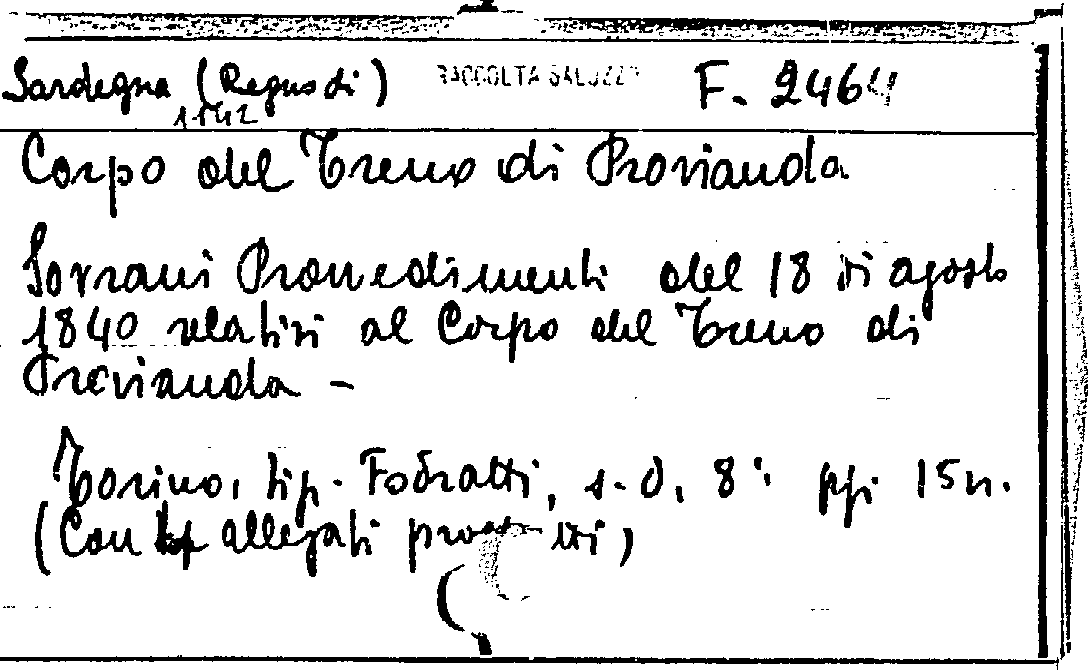 Sardegna (Regno di) RACCOLTA SALUZZO F. 2464
1842
Corpo del Treno di Provianda
Sovrani Provvedimenti del 18 di agosto
1840 relativi al Corpo del Treno di
Provianda -
Torino, tip. Fodratti, s.d. 8° pp. 15 n.
(Con allegati